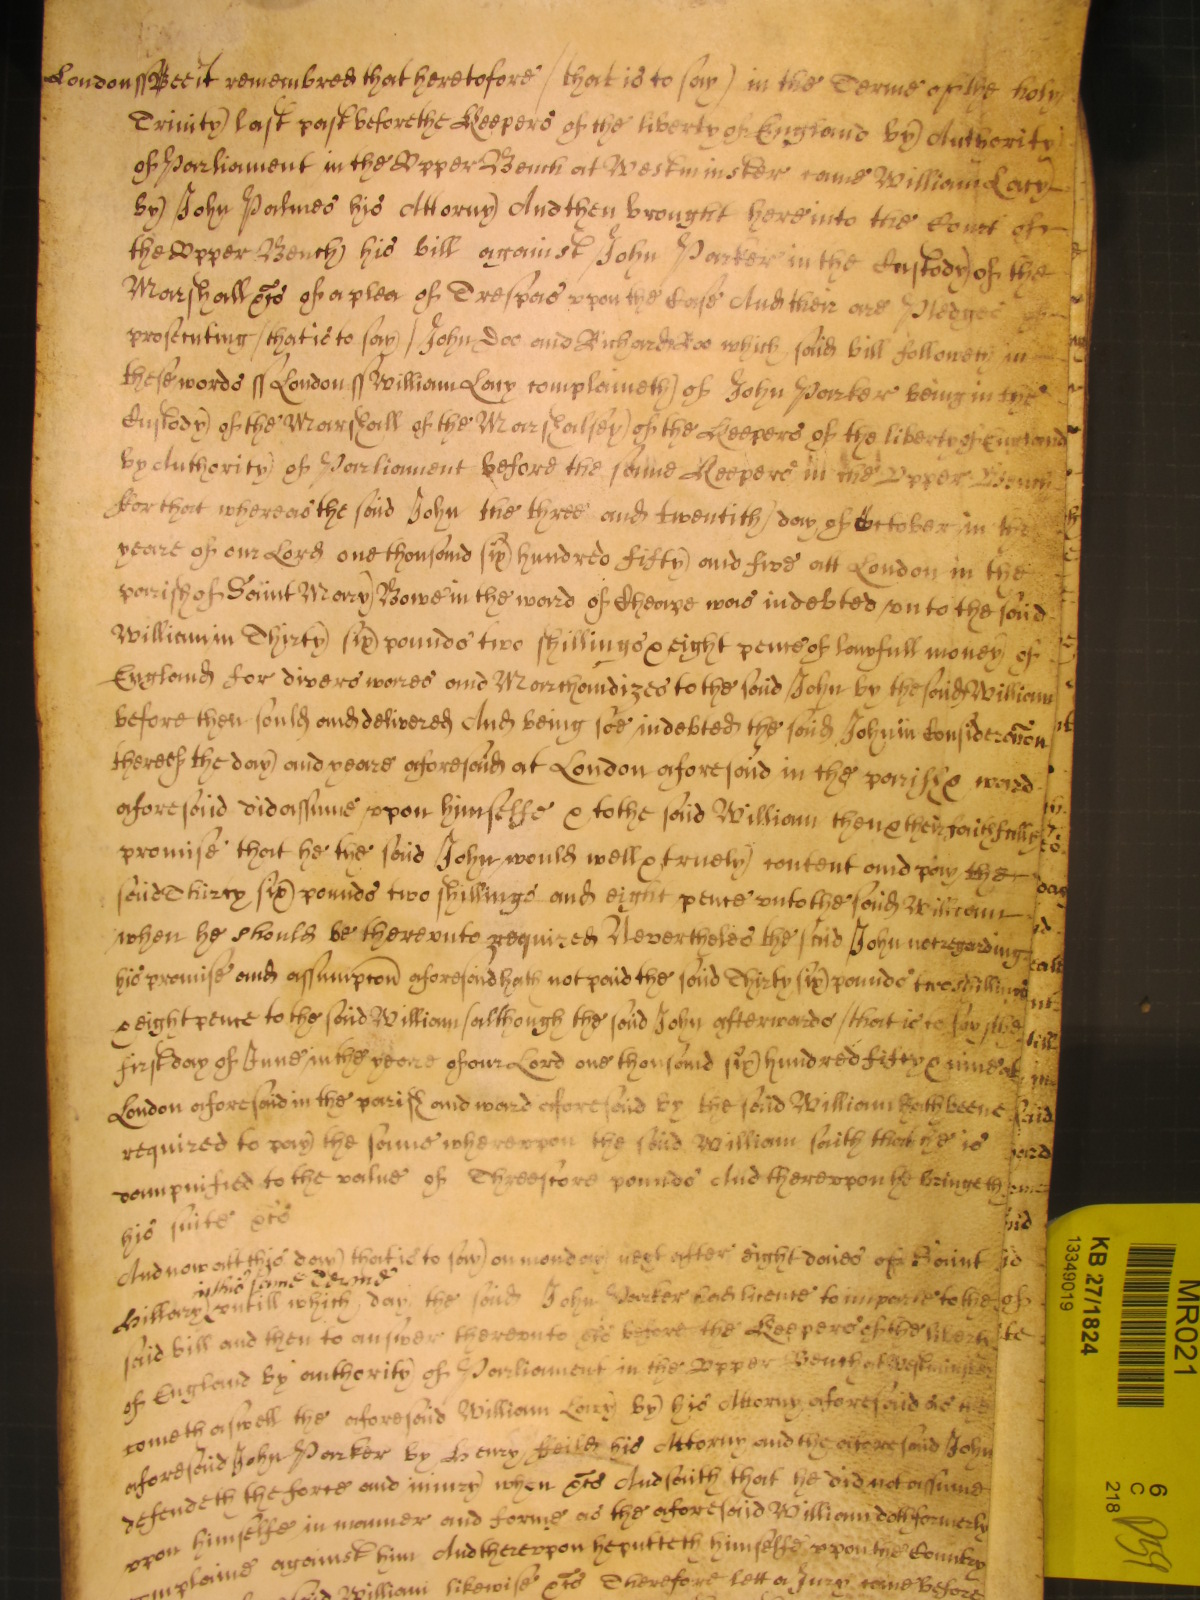 London ss Bee it remembred that heretofore / that is to say) in the Terme of the holy
Trinity) last past before the Keepers of the liberty of England by) Authority
of Parliament in the Upper Bench at Westminster came William Lacy
by) John Palmes his Attorny) And then brought here into the Court of
the Upper Bench) his bill against John Parker in the Custody) of the
Marshall &c of a plea of Trespas upon the Case And there are Pledges of
prosecuting / that is to say / John Doo and Richard Roo which said bill followeth in
these words ss London ss William Lacy complaineth) of John Parker being in the
Custody) of the Marshall of the Marshalsey) of the Keepers of the liberty of England
by Authority) of Parliament before the same Keepers in the Upper Bench
For that whereas the said John the three and twentith day of October in the
yeare of our Lord one thousand six) hundred fifty) and five att London in the
parish of Saint Mary) Bowe in the ward of Cheape was indebted unto the said
William in Thirty) six) pounds two shillings & eight pence of lawfull money of
England for divers wares and Marchandizes to the said John by the said William
before then sould and delivered And being soe indebted the said John in Consideracon
thereof the day) and yeare aforesaid at London aforesaid in the parish & ward
aforesaid did assume upon himselfe & to the said William then & there faithfully
promise that he the said John would well & truely) content and pay the
said Thirty six) pounds two shillings and eight pence unto the said William
when he should be thereunto required Nevertheles the said John not regarding
his promise and assumpcon aforesaid hath not paid the said Thirty six) pounds two shillings
& eight pence to the said William / although the said John afterwards / that is to say / the
first day of June in the yeare of our Lord one thousand six) hundred fifty & nine at
London aforesaid in the parish and ward aforesaid by the said William hath beene
required to pay) the same whereupon the said William saith that he is
dampnified to the value of Threescore pounds And thereupon he bringeth
his suite &c
And now att this day) that is to say) on monday next after eight daies of Saint
in this same Terme
Hillary untill which day the said John Parker had licence to imparle to the
said bill and then to answer thereunto &c before the Keepers of the liberty
of England by authority) of Parliament in the Upper Bench at Westminster
cometh aswell the aforesaid William Lacy by) his Attorny aforesaid as the
aforesaid John Parker by Henry Feild his Attorny and the aforesaid John
defendeth the force and injury when &c And saith that he did not assume
upon himselfe in manner and forme as the aforesaid William doth formerly
complaine against him And thereupon he putteth himselfe upon the Country
said William likewise &c Therefore lett a Jury come before
MR021
KB 27/1824
13349019
6
C
218